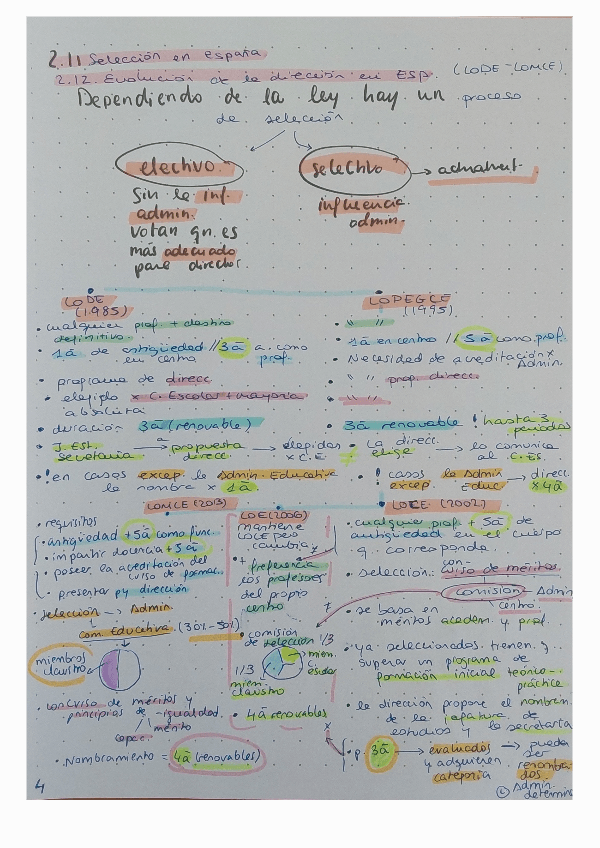 2.11 Selección en españa
2.12. Evolución de la dirección en ESP. (LODE-LOMCE)
Dependiendo de la ley hay un proceso
de selección
electivo
selectivo → admahvit.
Sin la inf.
admin.
votan qn. es
más adecuado
para director.
influencia
admin.
LODE
(1985)
• cualquier prof + destino
definitivo.
• 1ā de antigüedad // 3ā a. como
en centro prof.
• programa de direcc.
• elegido x C. Escolar + mayoría
absoluta
• duración: 3ā (renovable)
• J. Est. → propuesta → elegidos
secretaria direcc. x C.E.
• ! en casos excep. la Admin. Educativa
le nombra x 1ā
LOPEGCE
(1995)
• " "
• 1ā en centro // 5ā como prof.
• Necesidad de acreditación x
Admin.
• " " prog. direcc.
• " "
• 3ā renovable ! hasta 3
periodos
≠ • La direcc. → lo comunica
elige al C.Es.
! casos la Admin → direc.
excep. Educ x 4ā
LOMCE (2013)
• requisitos
• antigüedad +5ā como func.
• impartir docencia +5ā
• poseer la acreditación del
curso de formac.
• presentar py dirección
• selección → Admin.
com. Educativa. (30%-50%)
miembros
claustro
• concurso de méritos y
principios de igualdad.
mérito
capac.
• Nombramiento = 4ā (renovables)
LOE (2006)
mantiene
LOCE pero
cambia:
+ preferencia
los profesores
del propio
centro
• comisión
de selección 1/3
miem.
C.
escolar
1/3
miem.
claustro
• 4ā renovables
LOCE (2002)
• cualquier prof. + 5ā de
antigüedad en el cuerpo
q. corresponda.
• selección: con-
curso de méritos.
comisión Admin
centro
• se basa en
méritos academ. y prof.
• ya seleccionados tienen q.
superar un programa de
formación inicial teórico-
práctica
• la dirección propone el nombram.
de la jefatura de
estudios y la secretaría
• p. 3ā → evaluados → pueden
y adquieren ser
categoría renombra-
dos.
Admin
determina
4